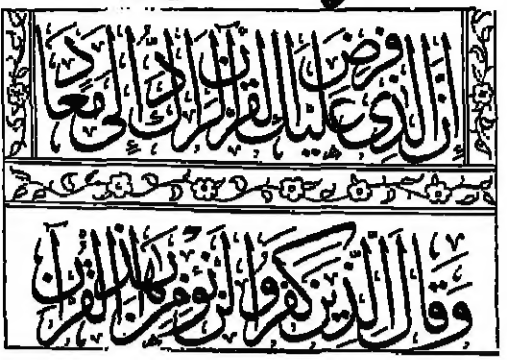 إن الذي فرض عليك القرآن لرادك إلى معاد
وقال الذين كفروا لن نؤمن بهذا القرآن